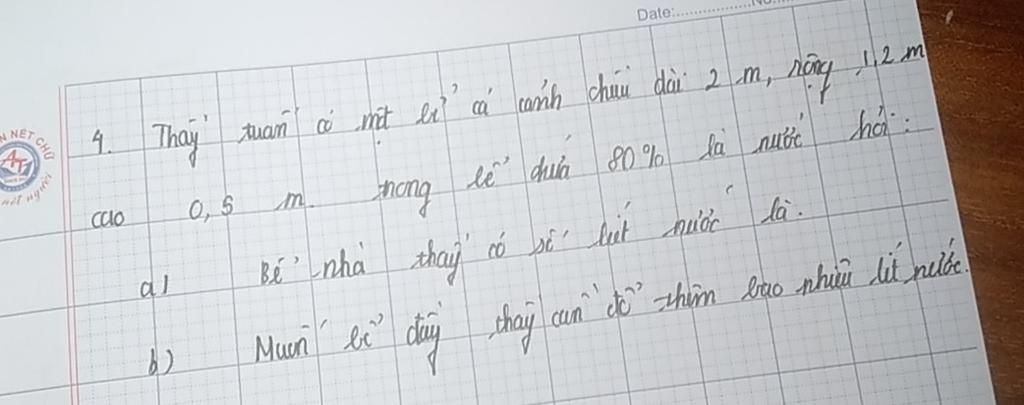 Date:..............No.
4. Thầy tuấn có một bể cá cảnh chiều dài 2 m, rộng 1,2 m
cao 0,5 m. trong bể chứa 80% là nước hỏi:
a) Bể nhà thầy có số lít nước là.
b) Muốn bể đầy thầy cần đổ thêm bao nhiêu lít nước.
N NÉT CHỮ
nết người